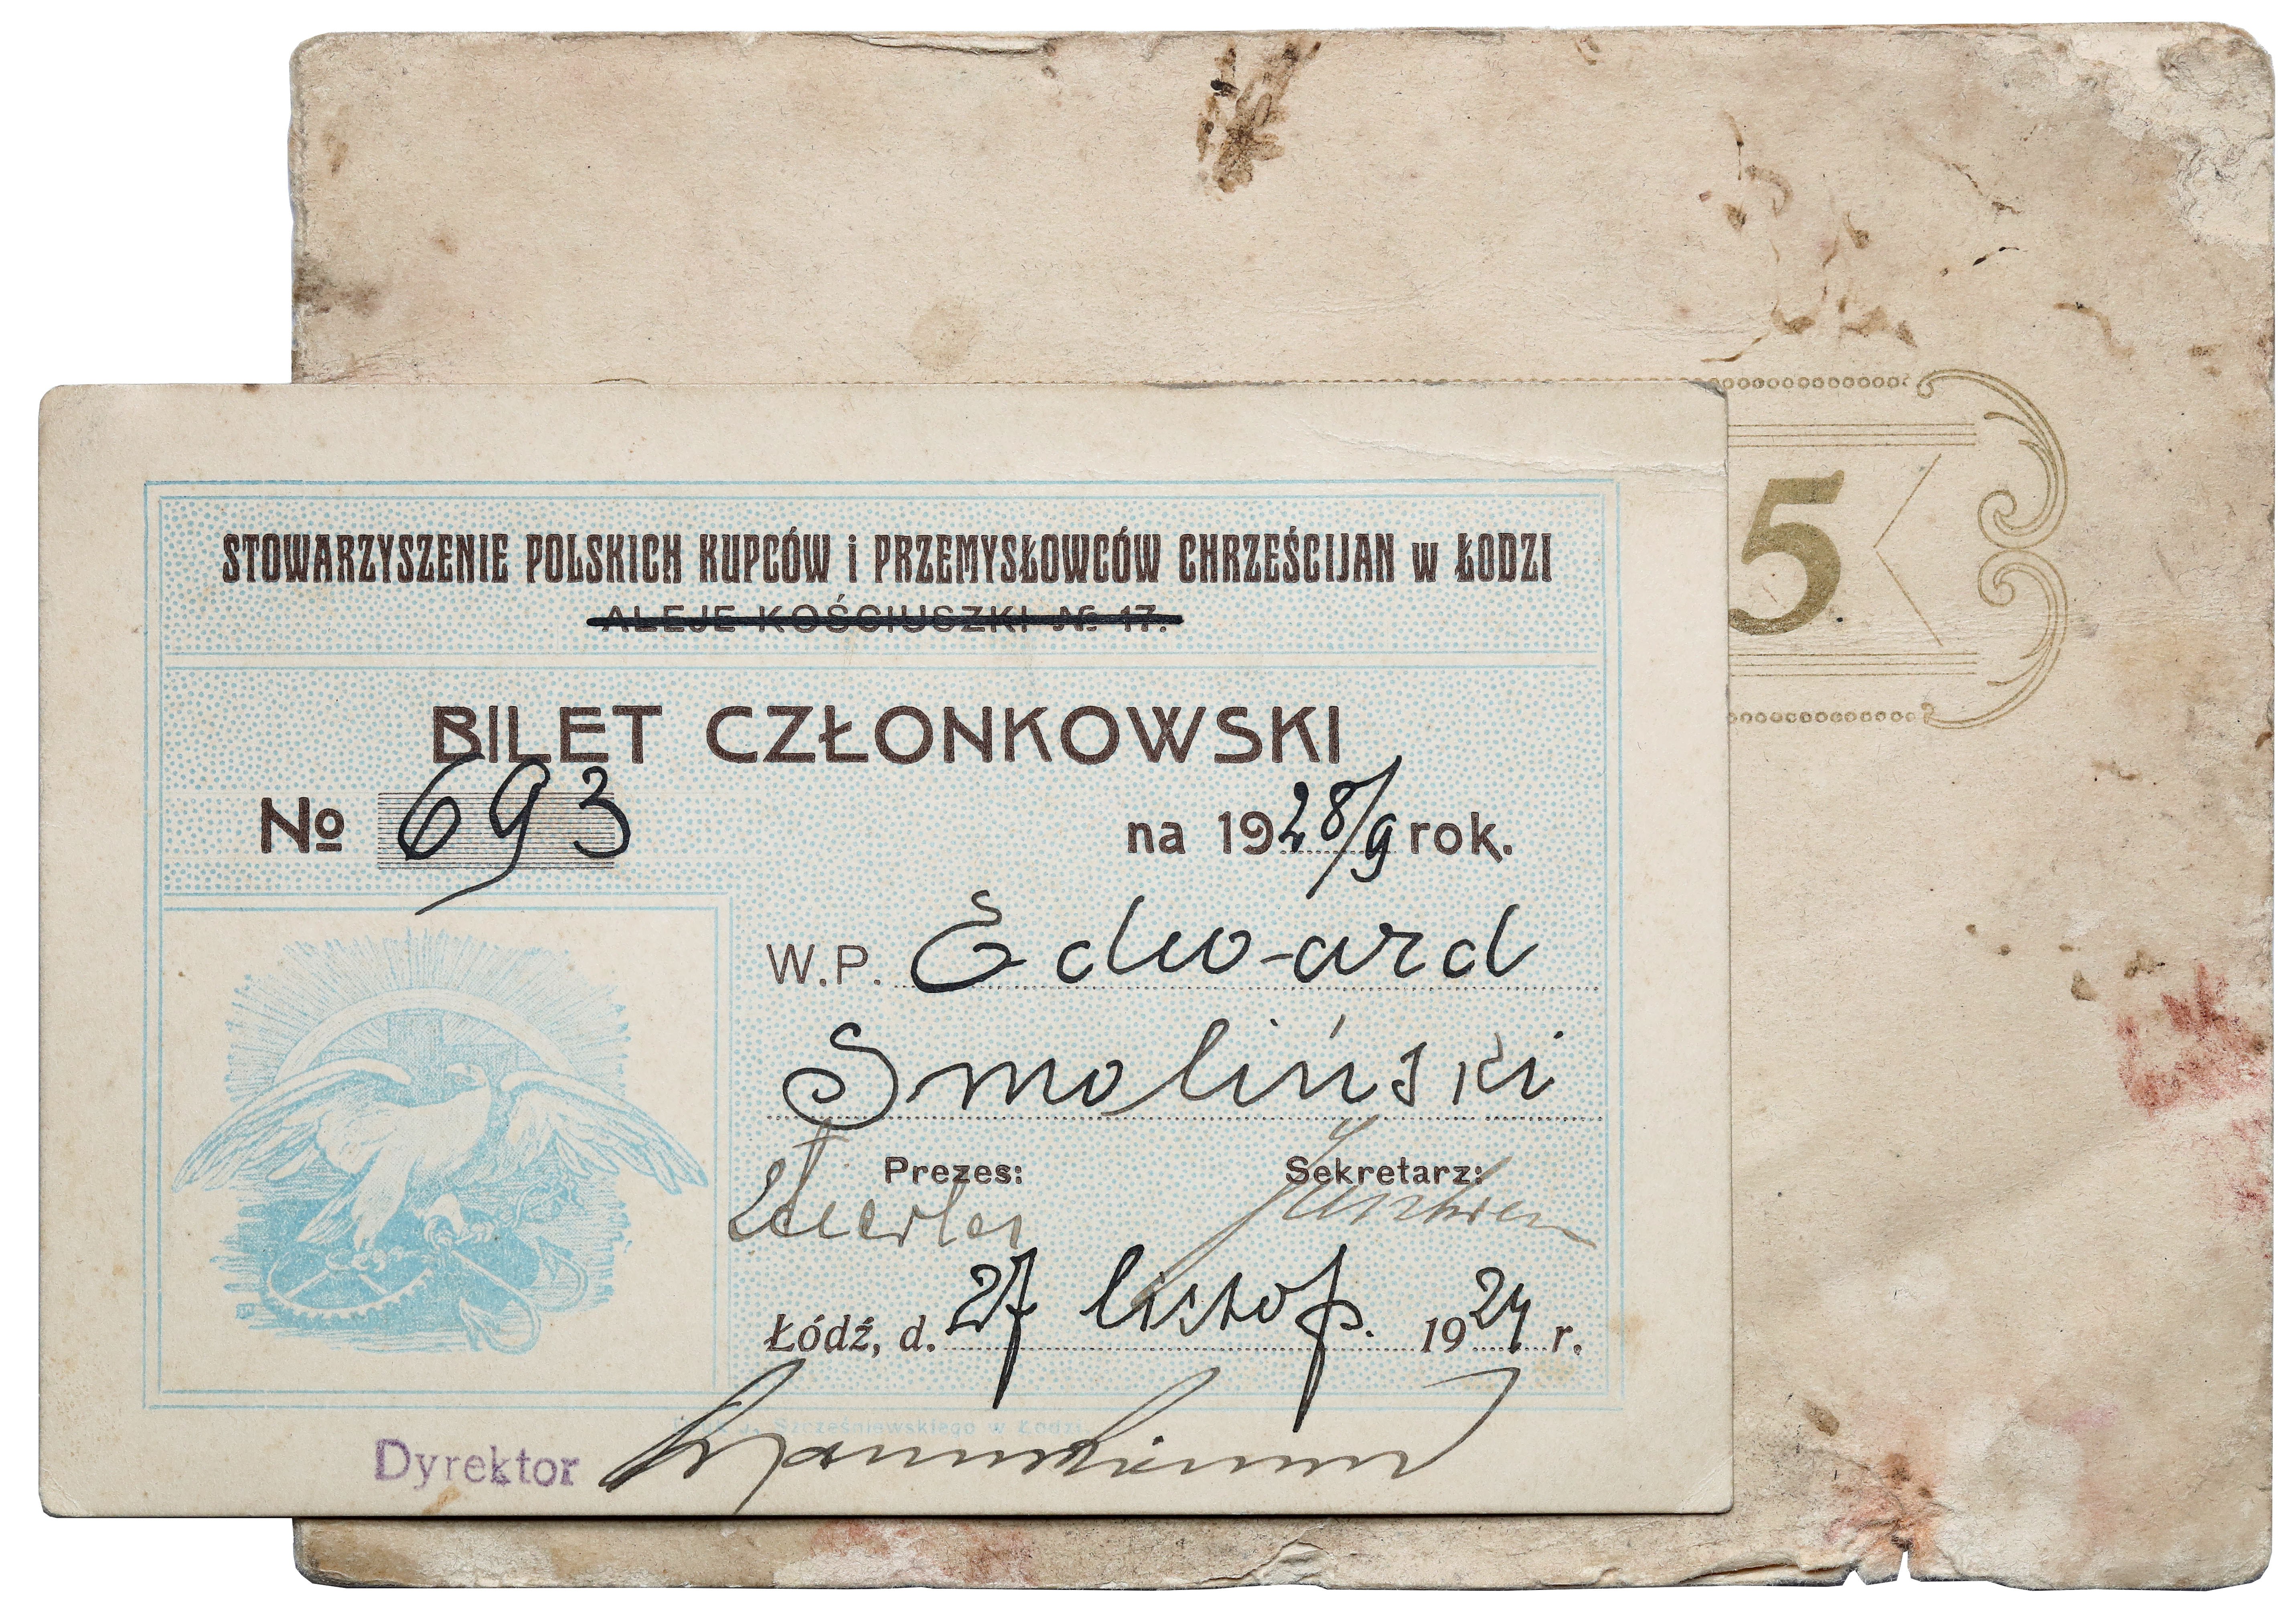 STOWARZYSZENIE POLSKICH KUPCÓW i PRZEMYSŁOWCÓW CHRZEŚCIJAN w ŁODZI
ALEJE KOŚCIUSZKI № 17.
5
BILET CZŁONKOWSKI
№ 693 na 1928/9 rok.
W.P. Edward
Smoliński
Prezes: Sekretarz:
Łódź, d. 27 listop. 19 r.
J. Szcześniewskiego w Łodzi
Dyrektor